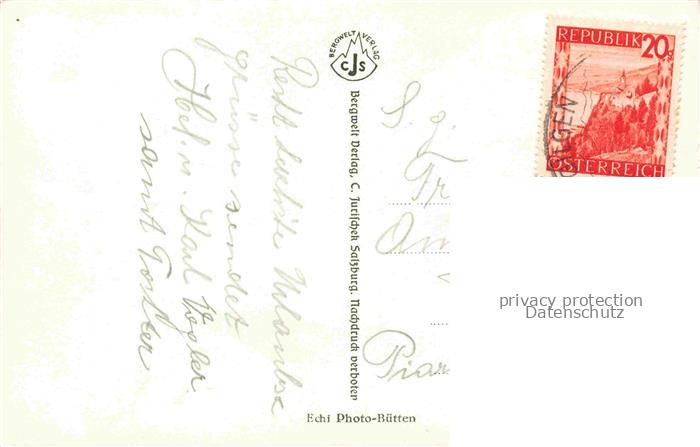 Recht herzliche Urlaubs
grüsse sendet
Hel. u. Karl Vogler
samt Tochter
BERGWELT VERLAG
CJS
Bergwelt Verlag, C. Jurischek Salzburg. Nachdruck verboten
Echt Photo-Bütten
REPUBLIK 20g
ÖSTERREICH
Fr
An
privacy protection
Datenschutz